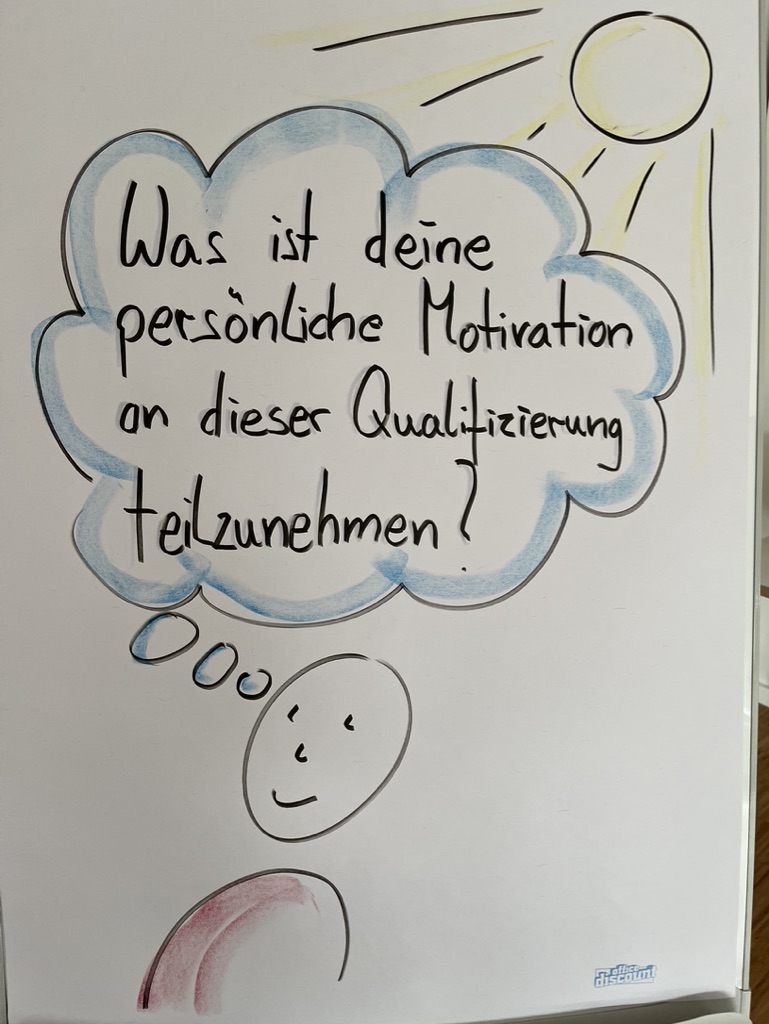 Was ist deine
persönliche Motivation
an dieser Qualifizierung
teilzunehmen?
office
discount